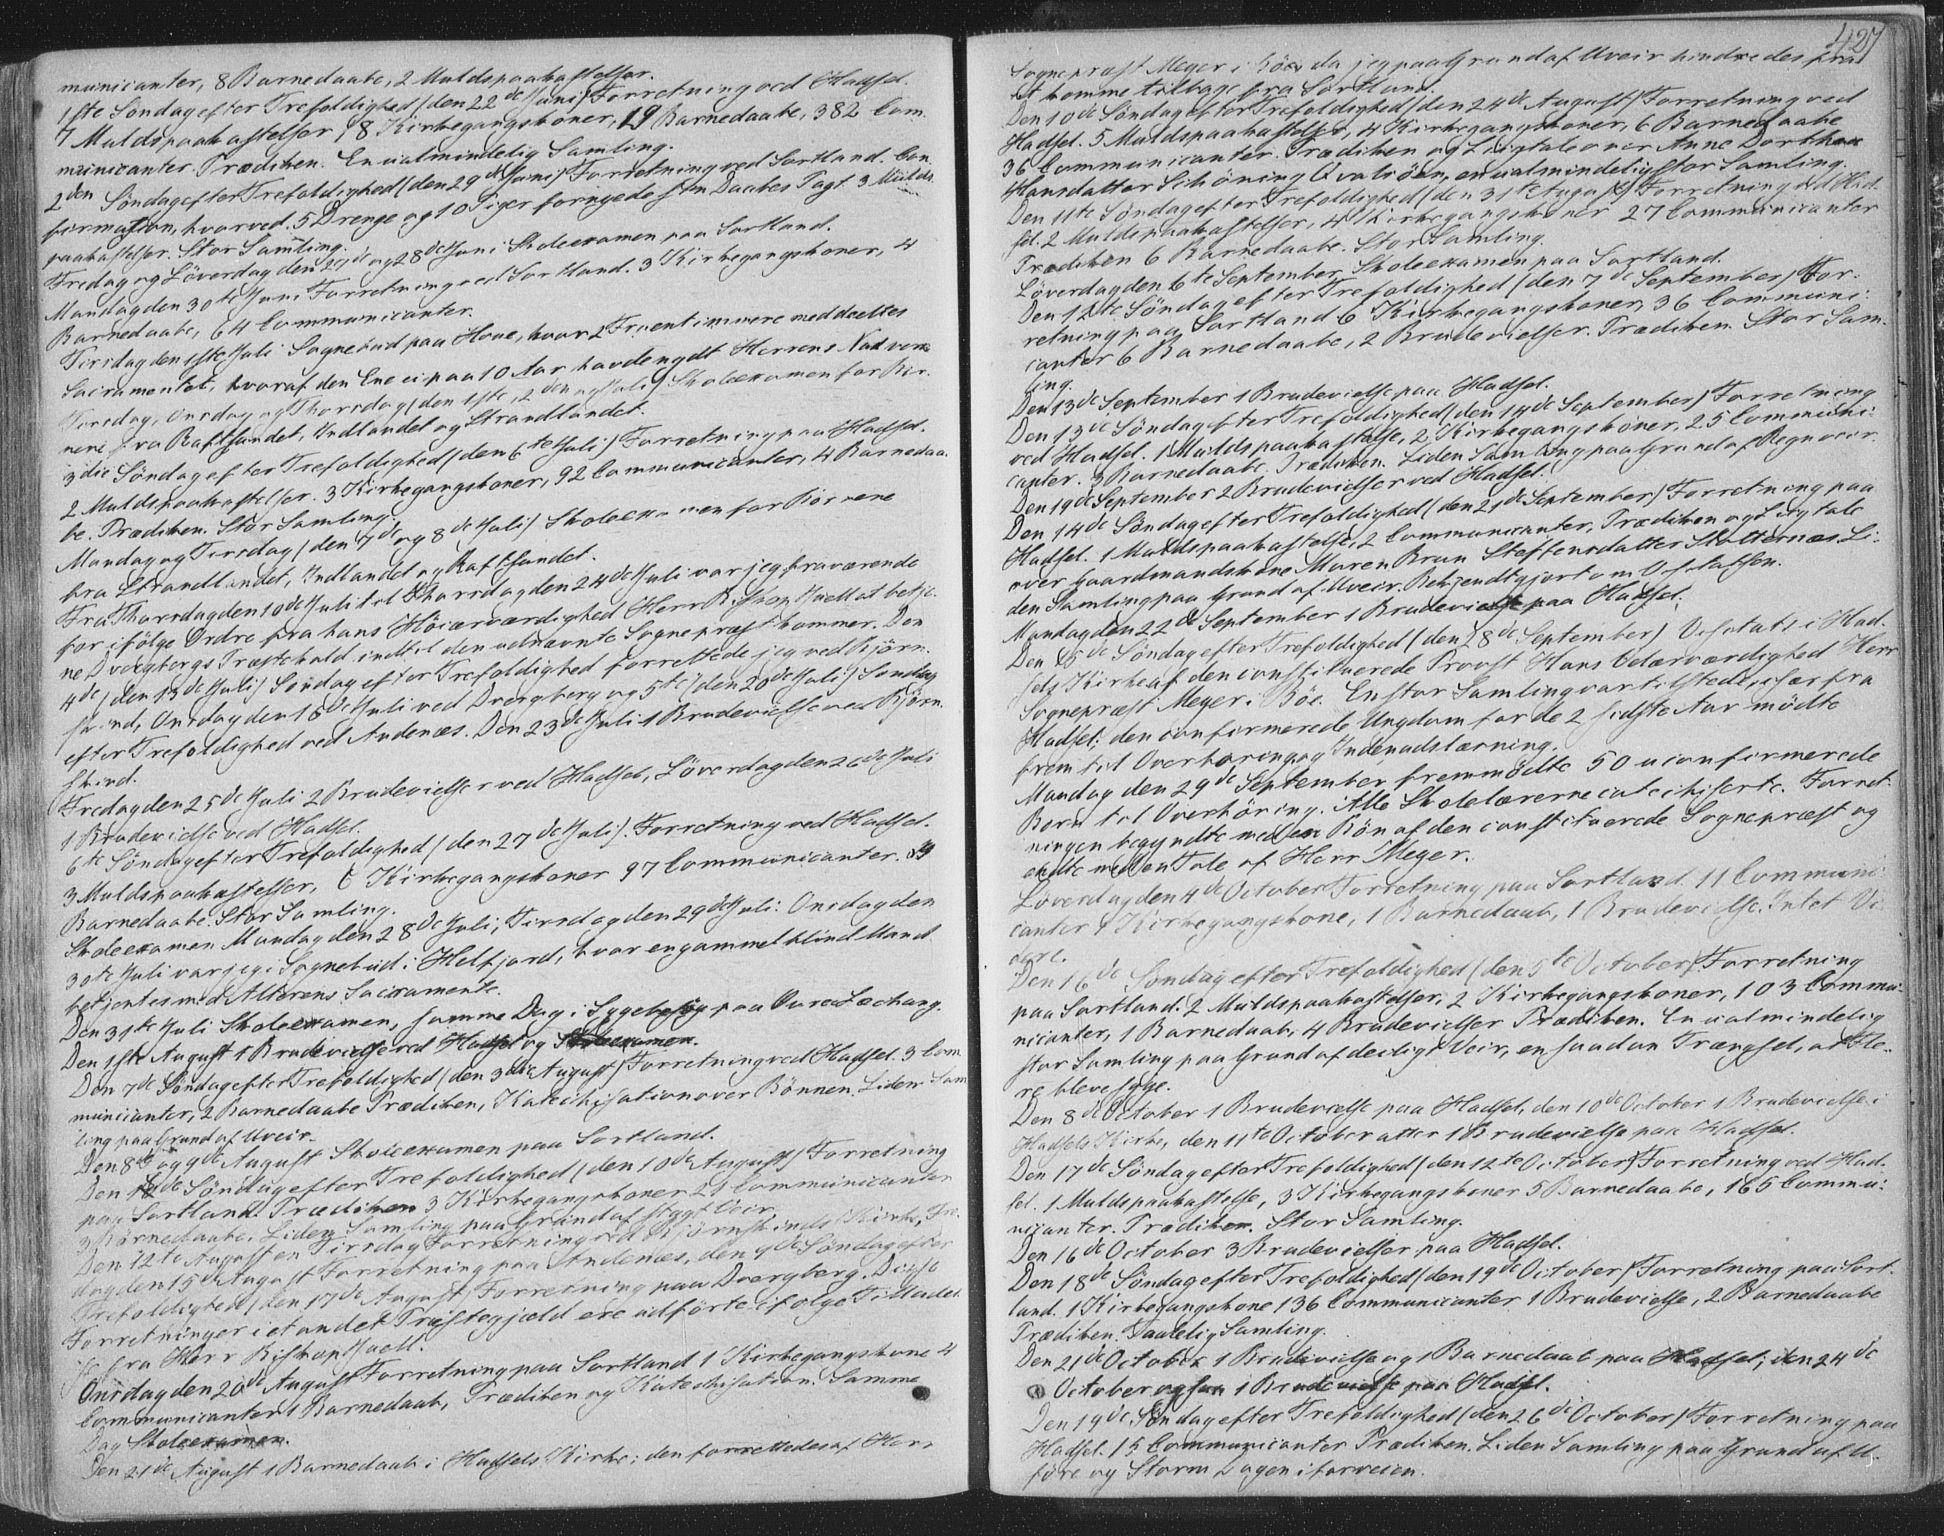 municanter, 8 Barnedaabe, 2 Muldspaakastelser.
1ste Söndag efter Trefoldighed (den 22de Juni) Forretning ved Hadsel.
7 Muldspaakastelser, 8 Kirkegangskoner, 19 Barnedaabe, 382 Com-
municanter. Prædiken. En ualmindelig Samling.
2den Söndag efter Trefoldighed (den 29de Juni) Forretning ved Sortland. Con-
firmation, hvorved 5 Drenge og 10 Piger fornyede sin Daabes Pagt. 3 Mulds-
paakastelser. Stor Samling.
Fredag og Löverdag den 27de og 28de Juni Skoleexamen paa Sortland.
Mandag den 30te Juni Forretning ved Sortland. 3 Kirkegangskoner, 4
Barnedaabe, 64 Communicanter.
Tirsdag den 1ste Juli Sognebud paa Hove, hvor 2 Fruentimmere meddeeltes
Sacramentet, hvoraf den Ene ei paa 10 Aar havde nydt Herrens Nadvere.
Tirsdag, Onsdag og Thorsdag (den 1ste, 2den og Juli) Skoleexamen for Bör-
nene fra Raftsundet, Indlandet og Strandlandet.
3die Söndag efter Trefoldighed (den 6te Juli) Forretning paa Hadsel.
2 Muldspaakastelser. 3 Kirkegangskoner, 92 Communicanter, 4 Barnedaa-
be. Prædiken. Stor Samling.
Mandag og Tirsdag (den 7de og 8de Juli) Skoleexamen for Börnene
fra Strandlandet, Indlandet og Raftsundet.
Fra Thorsdag den 10de Juli til Thorsdag den 24de Juli var jeg fraværende
for ifölge Ordre fra hans Höiærværdighed Herr Biskop Juell at betje-
ne Dverbergs Præstekald indtil den udnævnte Sognepræst kommer. Den
4de (den 13de Juli) Söndag efter Trefoldighed forrettede jeg ved Björn-
skind, Onsdag den 16de Juli ved Dverberg og 5te (den 20de Juli) Söndag
efter Trefoldighed ved Andenæs. Den 23de Juli 1 Brudevielse ved Björn-
skind.
Fredag den 25de Juli 2 Brudevielser ved Hadsel, Löverdag den 26de Juli
1 Brudevielse ved Hadsel.
6te Söndag efter Trefoldighed (den 27de Juli). Forretning ved Hadsel.
3 Muldspaakastelser, 6 Kirkegangskoner 97 Communicanter.
Barnedaabe. Stor Samling.
Skoleexamen Mandag den 28de Juli, Tirsdag den 29de Juli. Onsdag den
30te Juli var jeg i Sognebud i Helfjord, hvor en gammel blind Mand
betjentes med Alterens Sacramente.
Den 31te Juli Skoleexamen, samme Dag i Sygebesög paa
Den 1ste August 1 Brudevielse ved Hadsel og Skoleexamen.
Den 7de Söndag efter Trefoldighed (den 3die August) Forretning ved Hadsel. 3 Com-
municanter, 2 Barnedaabe Prædiken, Katechisation over Bönnen. Liden Sam-
ling paa Grund af Uveir.
Den 8de og 9de August Skoleexamen paa Sortland.
Den 8de Söndag efter Trefoldighed (den 10de August) Forretning
paa Sortland. Prædiken 3 Kirkegangskoner 21 Communicanter
3 Barnedaabe. Liden Samling paa Grund af stygt Veir.
Den 12te August en Tirsdag Forretning ved Björnskinds Kirke, Fre-
dag den 15de August Forretning paa Andenæs, den 9de Söndag efter
Trefoldighed (den 17de August) Forretning paa Dverberg. Disse
Forretninger i et andet Præstegjeld ere udförte ifölge Tilladel-
se fra Herr Biskop Juell.
Onsdag den 20de August Forretning paa Sortland 1 Kirkegangskone 4
Communicanter 1 Barnedaab, Prædiken og Katechisation. Samme
Dag Skoleexamen.
Den 21de August 1 Barnedaab i Hadsels Kirke; den forrettedes af Herr
427
Sognepræst Meyer i Böe, da jeg paa Grund af Uveir hindredes fra
at komme tilbage fra Sortland.
Den 10de Söndag efter Trefoldighed (den 24de August) Forretning ved
Hadsel. 5 Muldspaakastelser, 4 Kirkegangskoner, 6 Barnedaabe
36 Communicanter. Prædiken og Ligtale over Anne Dorthea
Hansdatter Schöning Qvalröen, en ualmindelig stor Samling.
Den 11te Söndag efter Trefoldighed (den 31te August) Forretning ved Had-
sel. 2 Muldspaakastelser, 4 Kirkegangskoner 27 Communicanter
Prædiken 6 Barnedaabe. Stor Samling.
Löverdag den 6te September Skoleexamen paa Sortland.
Den 12te Söndag efter Trefoldighed (den 7de September) For-
retning paa Sortland 6 Kirkegangskoner, 36 Communi-
canter 6 Barnedaabe, 2 Brudevielser. Prædiken. Stor Sam-
ling.
Den 13de September 1 Brudevielse paa Hadsel.
Den 13de Söndag efter Trefoldighed (den 14de September) Forretning
ved Hadsel. 1 Muldspaakastelse, 2 Kirkegangskoner, 25 Communi-
canter. 3 Barnedaabe. Prædiken. Liden Samling paa Grund af Regnveir.
Den 19de September 2 Brudevielser ved Hadsel.
Den 14de Söndag efter Trefoldighed (den 21de September) Forretning paa
Hadsel. 1 Muldspaakastelse, 2 Communicanter, Prædiken og Ligtale
over Gaardmandskone Maren Brun Steffensdatter Skotternæs Li-
den Samling paa Grund af Uveir. Bekjendtgjort om Visitatsen.
Mandag den 22de September 1 Brudevielse paa Hadsel.
Den 15de Söndag efter Trefoldighed (den 28de September) Visitats i Had-
sels Kirke af den constituerede Provst Hans Velærværdighed Herr
Sognepræst Meyer i Böe. En stor Samling var tilstede, især fra
Hadsel; den confirmerede Ungdom for de 2 sidste Aar mödte
frem til Overhöring og Indenadslæsning.
Mandag den 29de September fremmödte 50 uconfirmerede
Börn til Overhöring. Alle Skolelærerne catechiserte. Forret-
ningen begyndte med en Bön af den constituerede Sognepræst og
endte med en Tale af Herr Meyer.
Löverdag den 4de October Forretning paa Sortland. 11 Communi-
canter 1 Kirkegangskone, 1 Barnedaab, 1 Brudevielse. Intet Vi-
dere.
Den 16de Söndag efter Trefoldighed (den 5te October) Forretning
paa Sortland. 2 Muldspaakastelser, 2 Kirkegangskoner, 103 Commu-
nicanter, 1 Barnedaab, 4 Brudevielser Prædiken. En ualmindelig
stor Samling paa Grund af deiligt Veir, en saadan Trængsel, at Fle-
re bleve syge.
Den 8de October 1 Brudevielse paa Hadsel, den 10de October 1 Brudevielse i
Hadsels Kirke, den 11te October atter 1 Brudevielse paa Hadsel.
Den 17de Söndag efter Trefoldighed (den 12te October) Forretning ved Had-
sel. 1 Muldspaakastelse, 3 Kirkegangskoner 5 Barnedaabe, 165 Commu-
nicanter. Prædiken. Stor Samling.
Den 16de October 3 Brudevielser paa Hadsel.
Den 18de Söndag efter Trefoldighed (den 19de October) Forretning paa Sort-
land. 1 Kirkegangskone 136 Communicanter 1 Brudevielse, 2 Barnedaabe
Prædiken. Taalelig Samling.
Den 21de October 1 Brudevielse og 1 Barnedaab paa Hadsel; den 24de
October ogsaa 1 Brudevielse paa Hadsel.
Den 19de Söndag efter Trefoldighed (den 26de October) Forretning paa
Hadsel. 15 Communicanter Prædiken. Liden Samling paa Grund af U-
före og Storm Dagen i forveien.